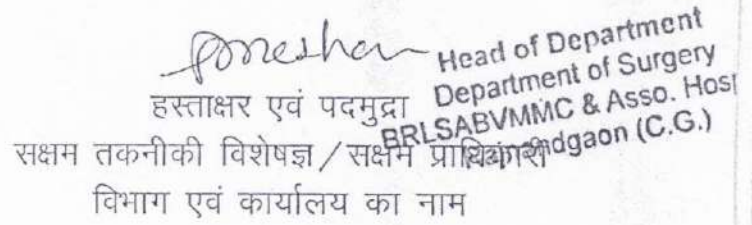 Head of Department
Department of Surgery
BRLSABVMMC & Asso. Hos
(C.G.)
हस्ताक्षर एवं पदमुद्रा
सक्षम तकनीकी विशेषज्ञ / सक्षम
विभाग एवं कार्यालय का नाम